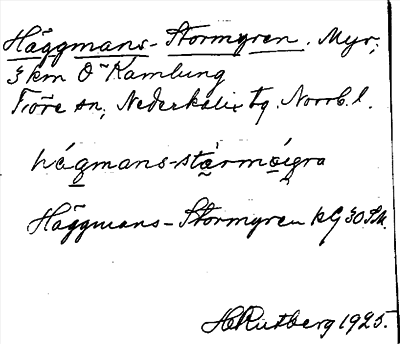 Häggmans-Stormyren. Myr,
3 km Ö Kamlung
Töre sn, Nederkalix tg. Norrb. l.
hágmans-stårmöigra
Häggmans-Stormyren kG 30 SM.
H Rutberg 1925.